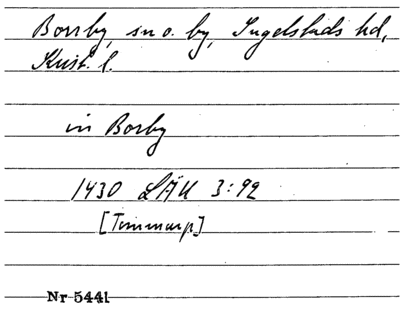 Borrby, sn o. by, Ingelstads hd,
Krist. l.
in Borby
1430 LÄU 3:92
[Tommarp]
Nr 5441